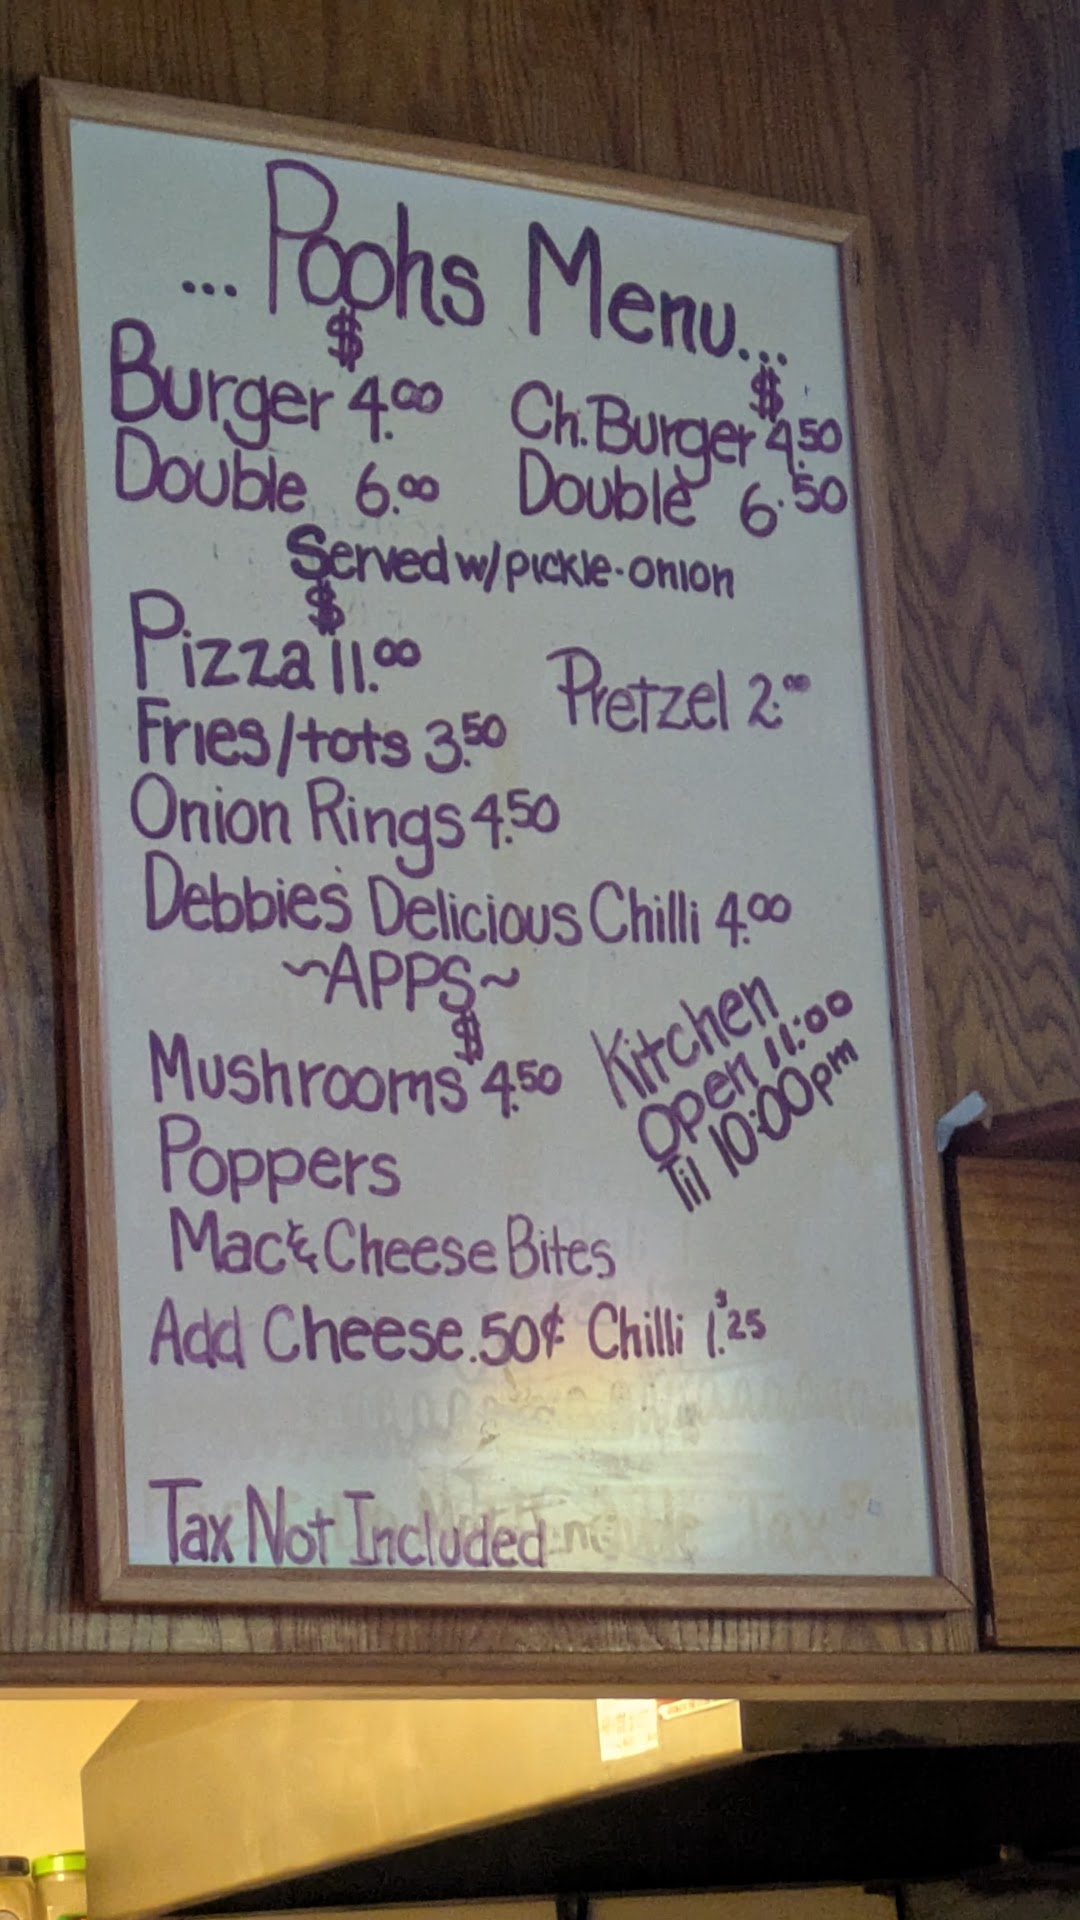 ... Poohs Menu...
Burger $4.00 Ch. Burger $4.50
Double 6.00 Double 6.50
Served w/ pickle-onion
Pizza $11.00
Pretzel 2.00
Fries/tots 3.50
Onion Rings 4.50
Debbie's Delicious Chilli 4.00
~APPS~
Mushrooms $4.50
Poppers
Mac & Cheese Bites
Kitchen
Open 11:00
Til 10:00pm
Add Cheese .50¢ Chilli $1.25
Tax Not Included